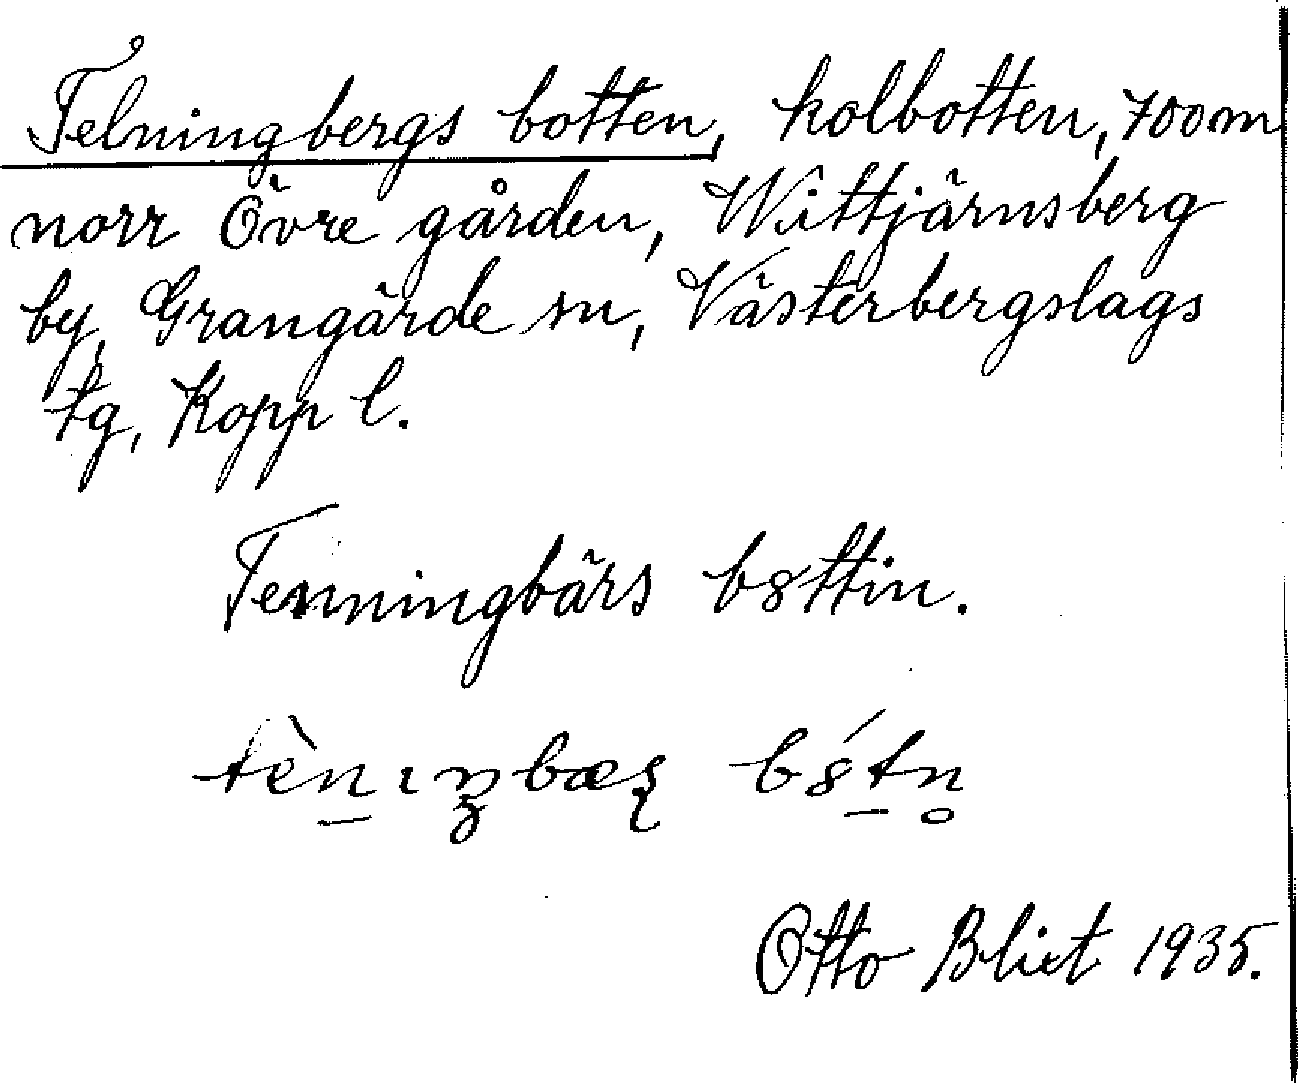 Telningbergs botten, kolbotten, 700 m
norr Övre gården, Wittjärnsberg
by, Grangärde sn, Västerbergslags
tg, Kopp l.
Tenningbärs b8ttin.
Otto Blixt 1935.